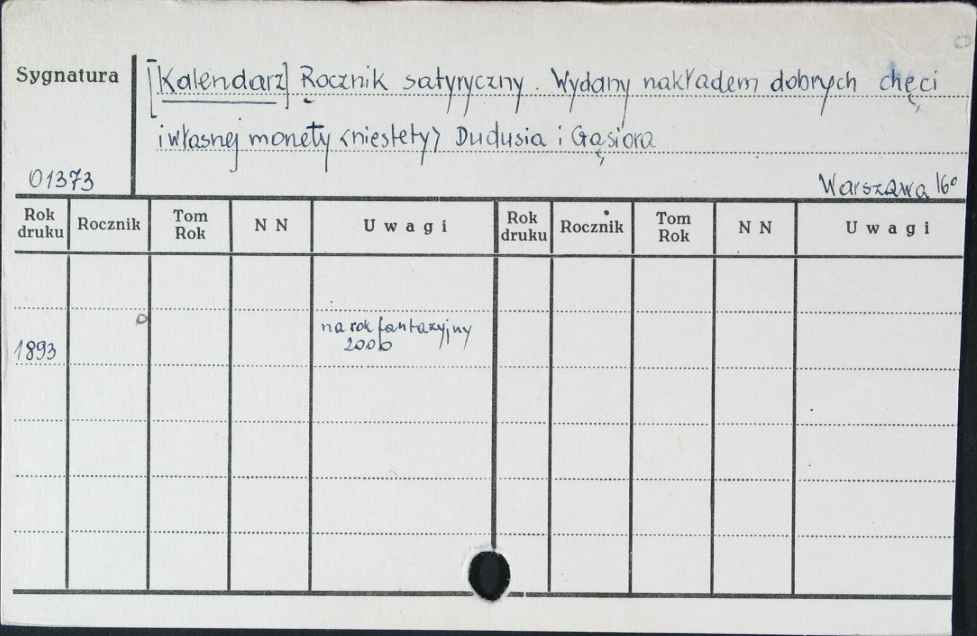 Sygnatura
[Kalendarz] Rocznik satyryczny. Wydany nakładem dobrych chęci
i własnej monety <niestety> Dudusia i Gąsiora
01373
Warszawa 16°
Rok druku Rocznik Tom Rok N N Uwagi Rok druku Rocznik Tom Rok N N Uwagi
1893 na rok fantazyjny
2000